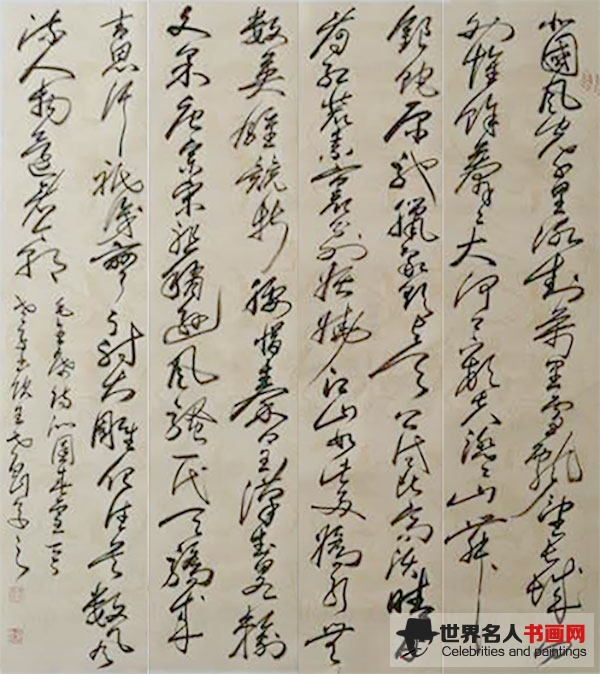 北國風光千里冰封萬里雪飄望長城内
外惟餘莽々大河上下頓失滔々山舞
銀蛇原馳臘象欲與天公試比高須晴日
看紅裝素裹分外妖嬈江山如此多嬌引無
數英雄競折腰惜秦皇漢武略輸
文采唐宗宋祖稍遜風騷一代天驕成
吉思汗祇識彎弓射大雕俱往矣數風
流人物還看今朝
毛主席詩沁園春雪
世界名人书画网
Celebrities and paintings